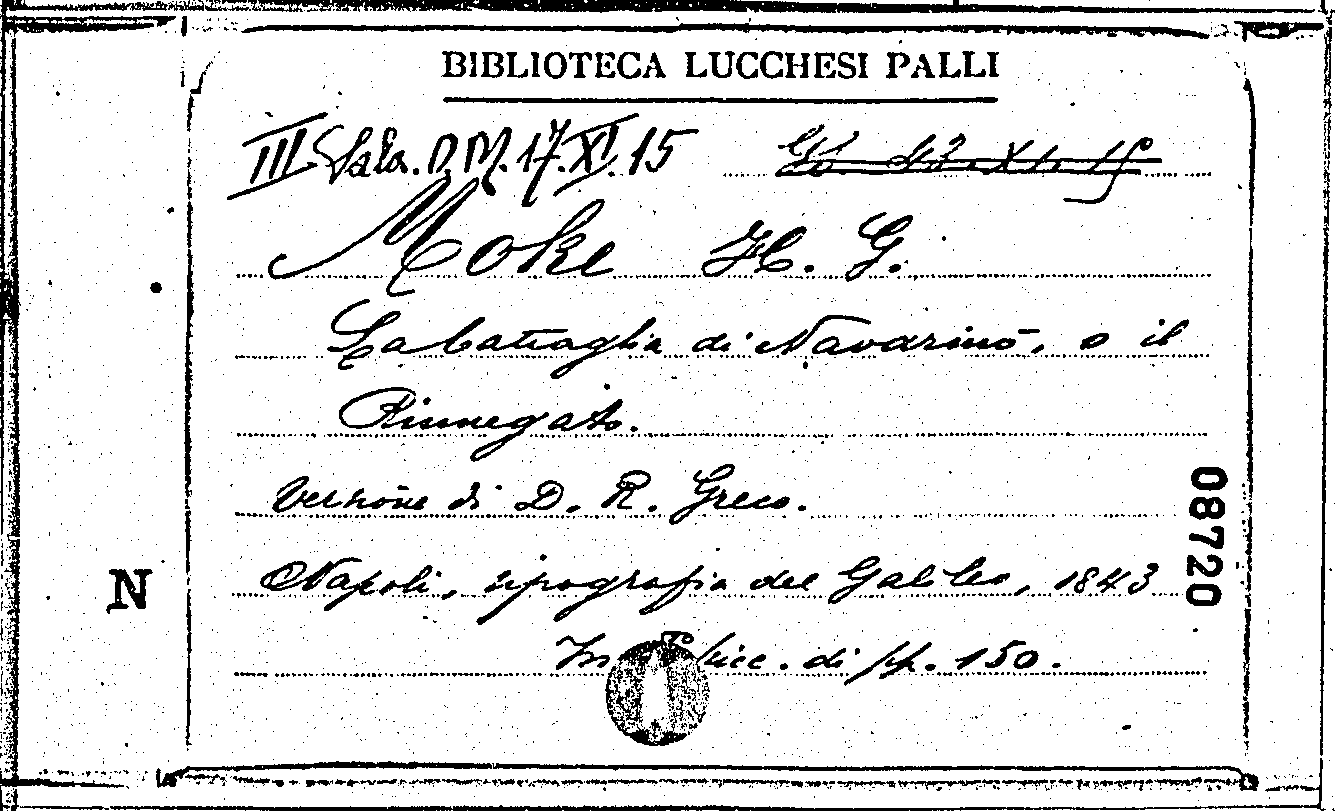 BIBLIOTECA LUCCHESI PALLI
III Sala. D. M. 17. XI. 15
Moke H. G.
La battaglia di Navarino, o il
Rinnegato.
Versione di D. R. Greco.
Napoli, tipografia del Galileo, 1843
In picc. di pp. 150.
N
08720